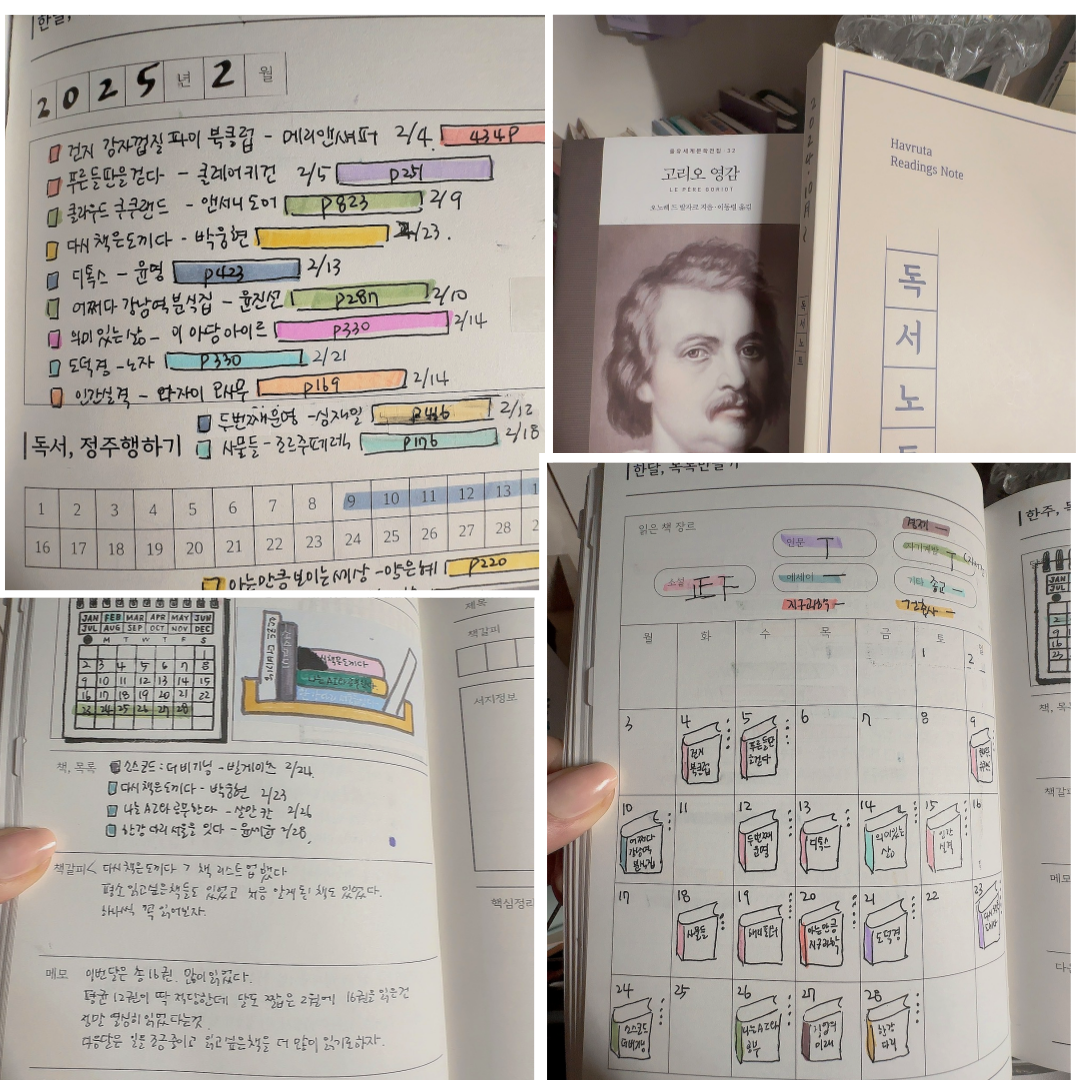 한달,
2025년 2월
건지 감자껍질 파이 북클럽 - 메리앤셰퍼 2/4 434P
푸른들판을걷다 - 클레어키건 2/5 p251
클라우드 쿠쿠랜드 - 앤서니도어 p823 2/9
다시 책은도끼다 - 박웅현 /23.
디톡스 - 윤명 p423 2/13
어쩌다 강남역분식집 - 윤진선 p287 2/10
의미 있는 삶 - 미 아담아이르 p330 2/14
도덕경 - 노자 p330 2/21
인간실격 - 다자이 오사무 p169 2/14
두번째운명 - 성재일 p446 2/12
독서, 정주행하기
사물들 - 조르주페레크 p176 2/18
1 2 3 4 5 6 7 8 9 10 11 12 13
16 17 18 19 20 21 22 23 24 25 26 27 28
아는만큼보이는세상 - p220
을유세계문학전집 32
고리오 영감
LE PÈRE GORIOT
오노레 드 발자크 지음·이동렬 옮김
2024.10
독서노트
Havruta
Readings Note
독
서
노
JAN FEB MAR APR MAY JUN
JUL AUG SEP OCT NOV DEC
M T W T F S
1
2 3 4 5 6 7 8
9 10 11 12 13 14 15
16 17 18 19 20 21 22
23 24 25 26 27 28
책은도끼다
제목
책갈피
서지정보
핵심정리
책, 목록 소스코드:더비기닝 - 빌게이츠 2/24.
다시책은도끼다 - 박웅현 2/23
나는 AI와 공부한다 - 살만 칸 2/26
한강 다리 서울을 잇다 - 윤세윤 2/28,
책갈피 < 다시책은도끼다 > 책 리스트 업했다
평소 읽고싶은책들도 있었고 처음 알게 된 책도 있었다.
하나씩 꼭 읽어보자.
메모 이번달은 총 16권. 많이읽었다.
평균 12권이 딱 적당한데 달도 짧은 2월에 16권을읽은건
정말 열심히 읽었다는것.
다음달은 일을 조금줄이고 읽고싶은책을 더 많이 읽기로하자.
한달, 목록만들기
읽은 책 장르
경제
인문
자기계발
소설 正
에세이
기타 종교
지구과학
건축사
월 화 수 목 금 토 일
1 2
3 4 5 6 7 8 9
건지 북클럽
푸른들판 을걷다
10 11 12 13 14 15 16
어쩌다 강남역 분식집
두번째 운명
디톡스
의미있는 삶
인간 실격
17 18 19 20 21 22 23
사물들
아는만큼 지구과학
도덕경
24 25 26 27 28
소스코드 더비기닝
나는AI와 공부
직업의 미래
한강 다리
한주,
책,
책갈
메모
다음